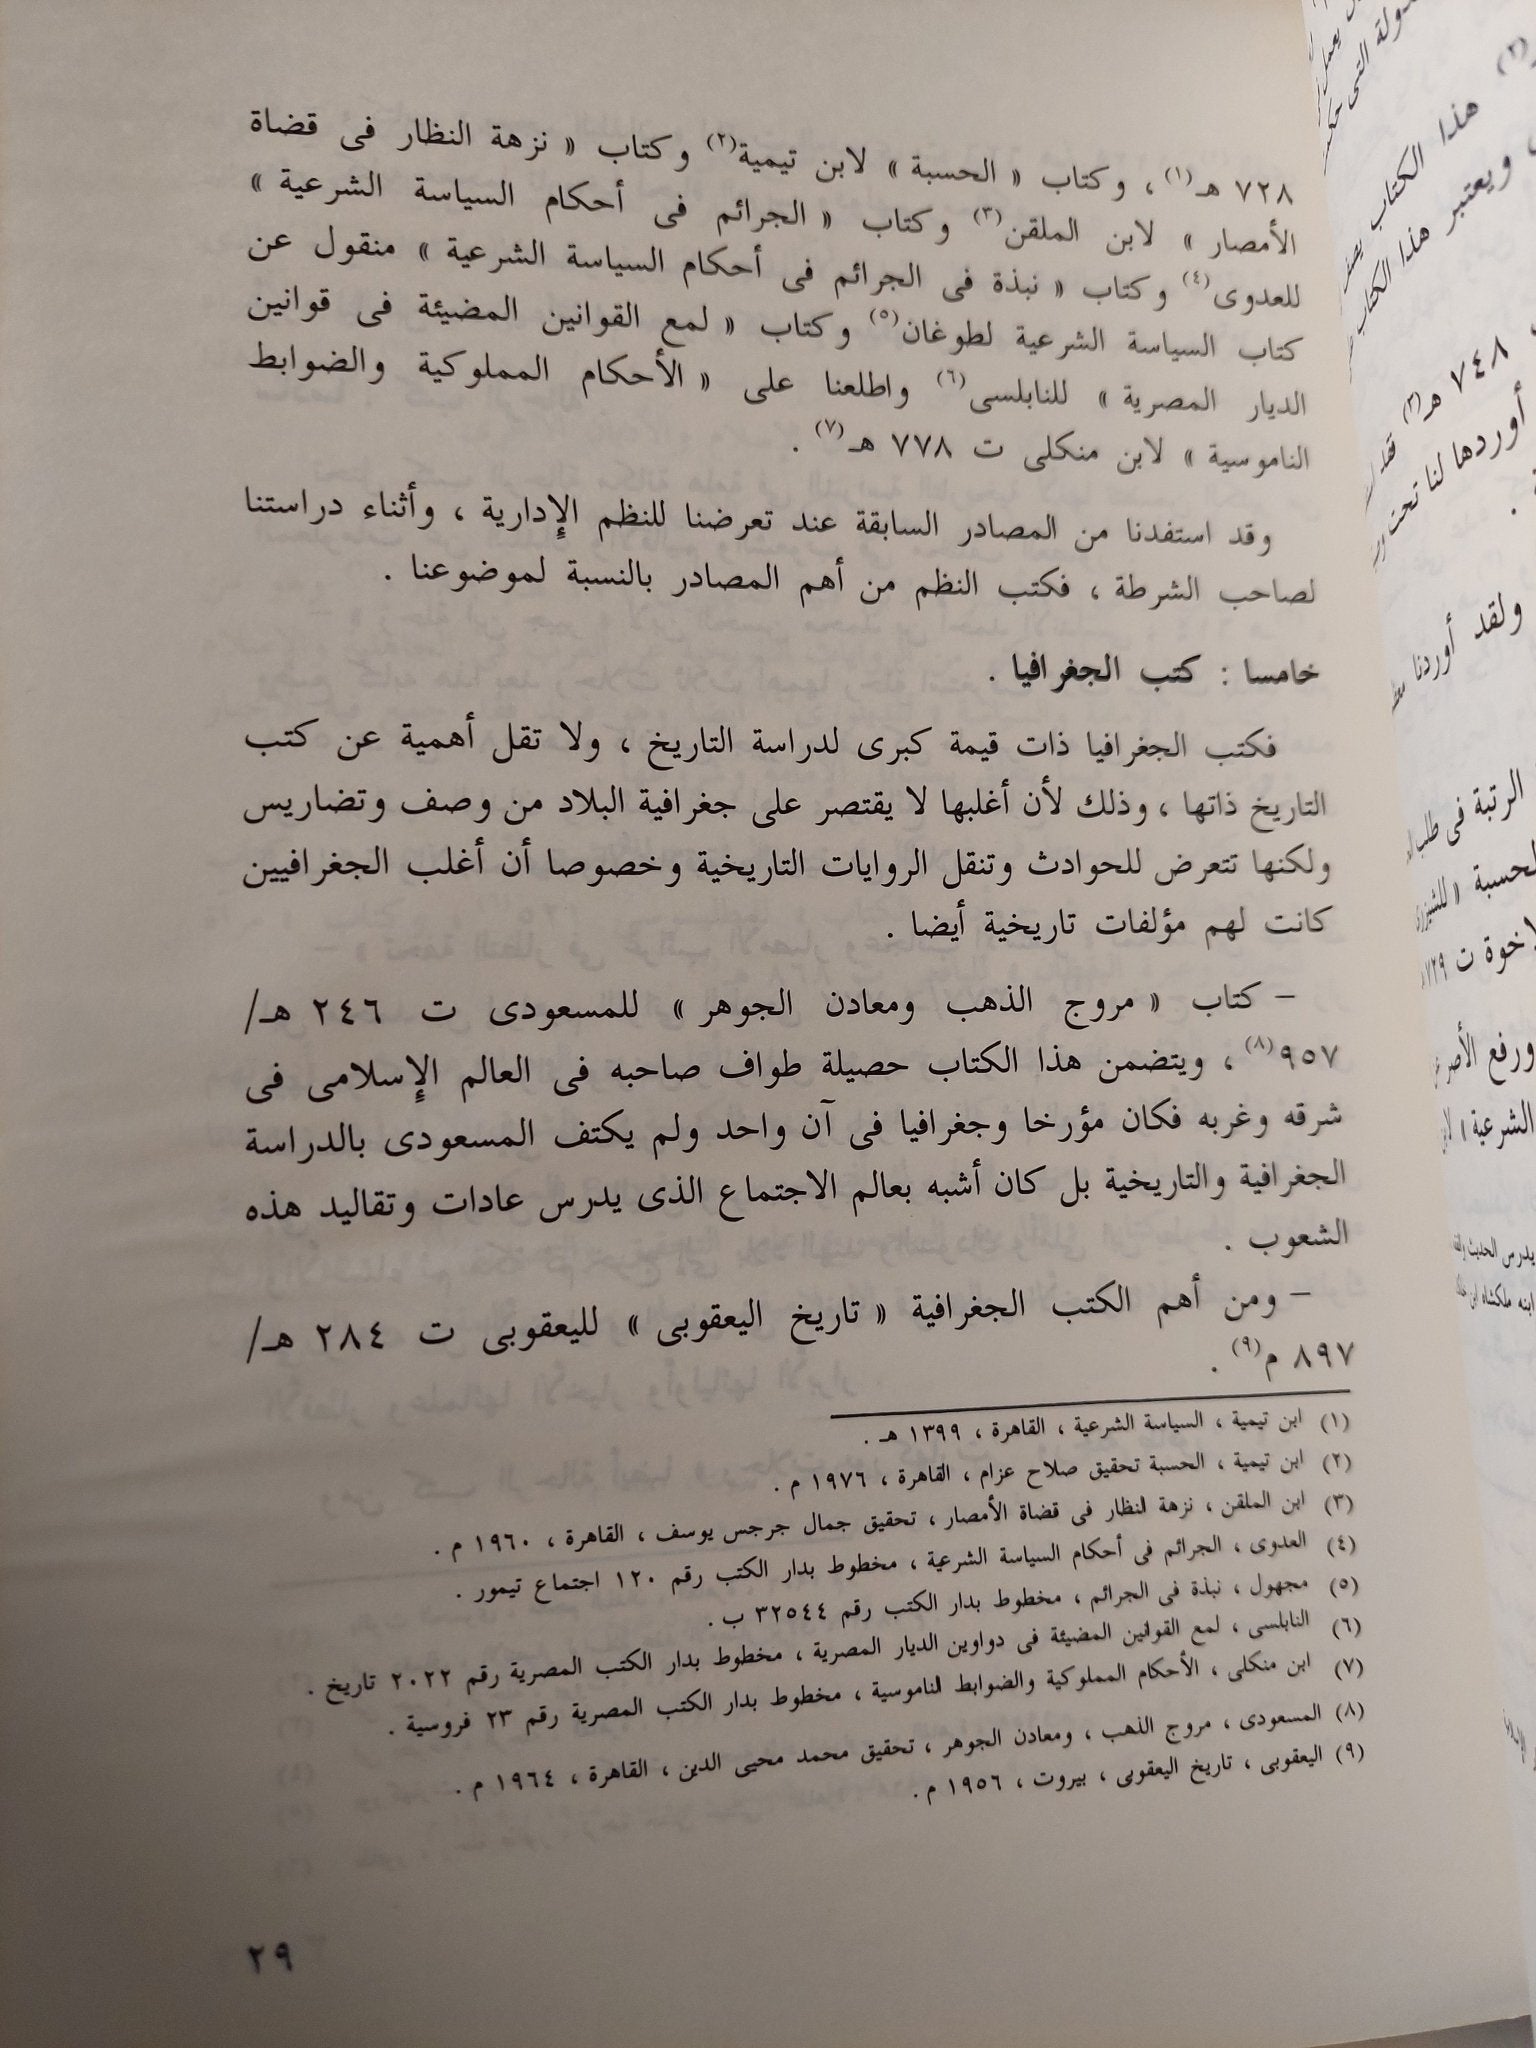 ٧٢٨ هـ(١) ، وكتاب « الحسبة » لابن تيمية(٢) وكتاب « نزهة النظار فى قضاة
الأمصار » لابن الملقن(٣) وكتاب « الجرائم فى أحكام السياسة الشرعية »
للعدوى(٤) وكتاب « نبذة فى الجرائم فى أحكام السياسة الشرعية » منقول عن
كتاب السياسة الشرعية لطوغان(٥) وكتاب « لمع القوانين المضيئة فى قوانين
الديار المصرية » للنابلسى(٦) واطلعنا على « الأحكام المملوكية والضوابط
الناموسية » لابن منكلى ت ٧٧٨ هـ(٧) .
وقد استفدنا من المصادر السابقة عند تعرضنا للنظم الإدارية ، وأثناء دراستنا
لصاحب الشرطة ، فكتب النظم من أهم المصادر بالنسبة لموضوعنا .
خامسا : كتب الجغرافيا .
فكتب الجغرافيا ذات قيمة كبرى لدراسة التاريخ ، ولا تقل أهمية عن كتب
التاريخ ذاتها ، وذلك لأن أغلبها لا يقتصر على جغرافية البلاد من وصف وتضاريس
ولكنها تتعرض للحوادث وتنقل الروايات التاريخية وخصوصا أن أغلب الجغرافيين
كانت لهم مؤلفات تاريخية أيضا .
– كتاب « مروج الذهب ومعادن الجوهر » للمسعودى ت ٢٤٦ هـ/
٩٥٧(٨) ، ويتضمن هذا الكتاب حصيلة طواف صاحبه فى العالم الإسلامى فى
شرقه وغربه فكان مؤرخا وجغرافيا فى آن واحد ولم يكتف المسعودى بالدراسة
الجغرافية والتاريخية بل كان أشبه بعالم الاجتماع الذى يدرس عادات وتقاليد هذه
الشعوب .
– ومن أهم الكتب الجغرافية « تاريخ اليعقوبى » لليعقوبى ت ٢٨٤ هـ/
٨٩٧ م(٩) .
(١) ابن تيمية ، السياسة الشرعية ، القاهرة ، ١٣٩٩ هـ .
(٢) ابن تيمية ، الحسبة تحقيق صلاح عزام ، القاهرة ، ١٩٧٦ م .
(٣) ابن الملقن ، نزهة النظار فى قضاة الأمصار ، تحقيق جمال جرجس يوسف ، القاهرة ، ١٩٦٠ م .
(٤) العدوى ، الجرائم فى أحكام السياسة الشرعية ، مخطوط بدار الكتب رقم ١٢٠ اجتماع تيمور .
(٥) مجهول ، نبذة فى الجرائم ، مخطوط بدار الكتب رقم ٣٢٥٤٤ ب .
(٦) النابلسى ، لمع القوانين المضيئة فى دواوين الديار المصرية ، مخطوط بدار الكتب المصرية رقم ٢٠٢٢ تاريخ .
(٧) ابن منكلى ، الأحكام المملوكية والضوابط الناموسية ، مخطوط بدار الكتب المصرية رقم ٢٣ فروسية .
(٨) المسعودى ، مروج الذهب ، ومعادن الجوهر ، تحقيق محمد محيى الدين ، القاهرة ، ١٩٦٤ م .
(٩) اليعقوبى ، تاريخ اليعقوبى ، بيروت ، ١٩٥٦ م .
٢٩
التى
هذا الكتاب
ويعتبر هذا الكتاب
٧٤٨ هـ(٣)
أوردها لنا تحت
ولقد أوردنا
الرتبة فى طلب
لحسبة « للشيزرى
ورفع الأصر
الشرعية »
يدرس الحديث
ابنه ملكشاه ابن